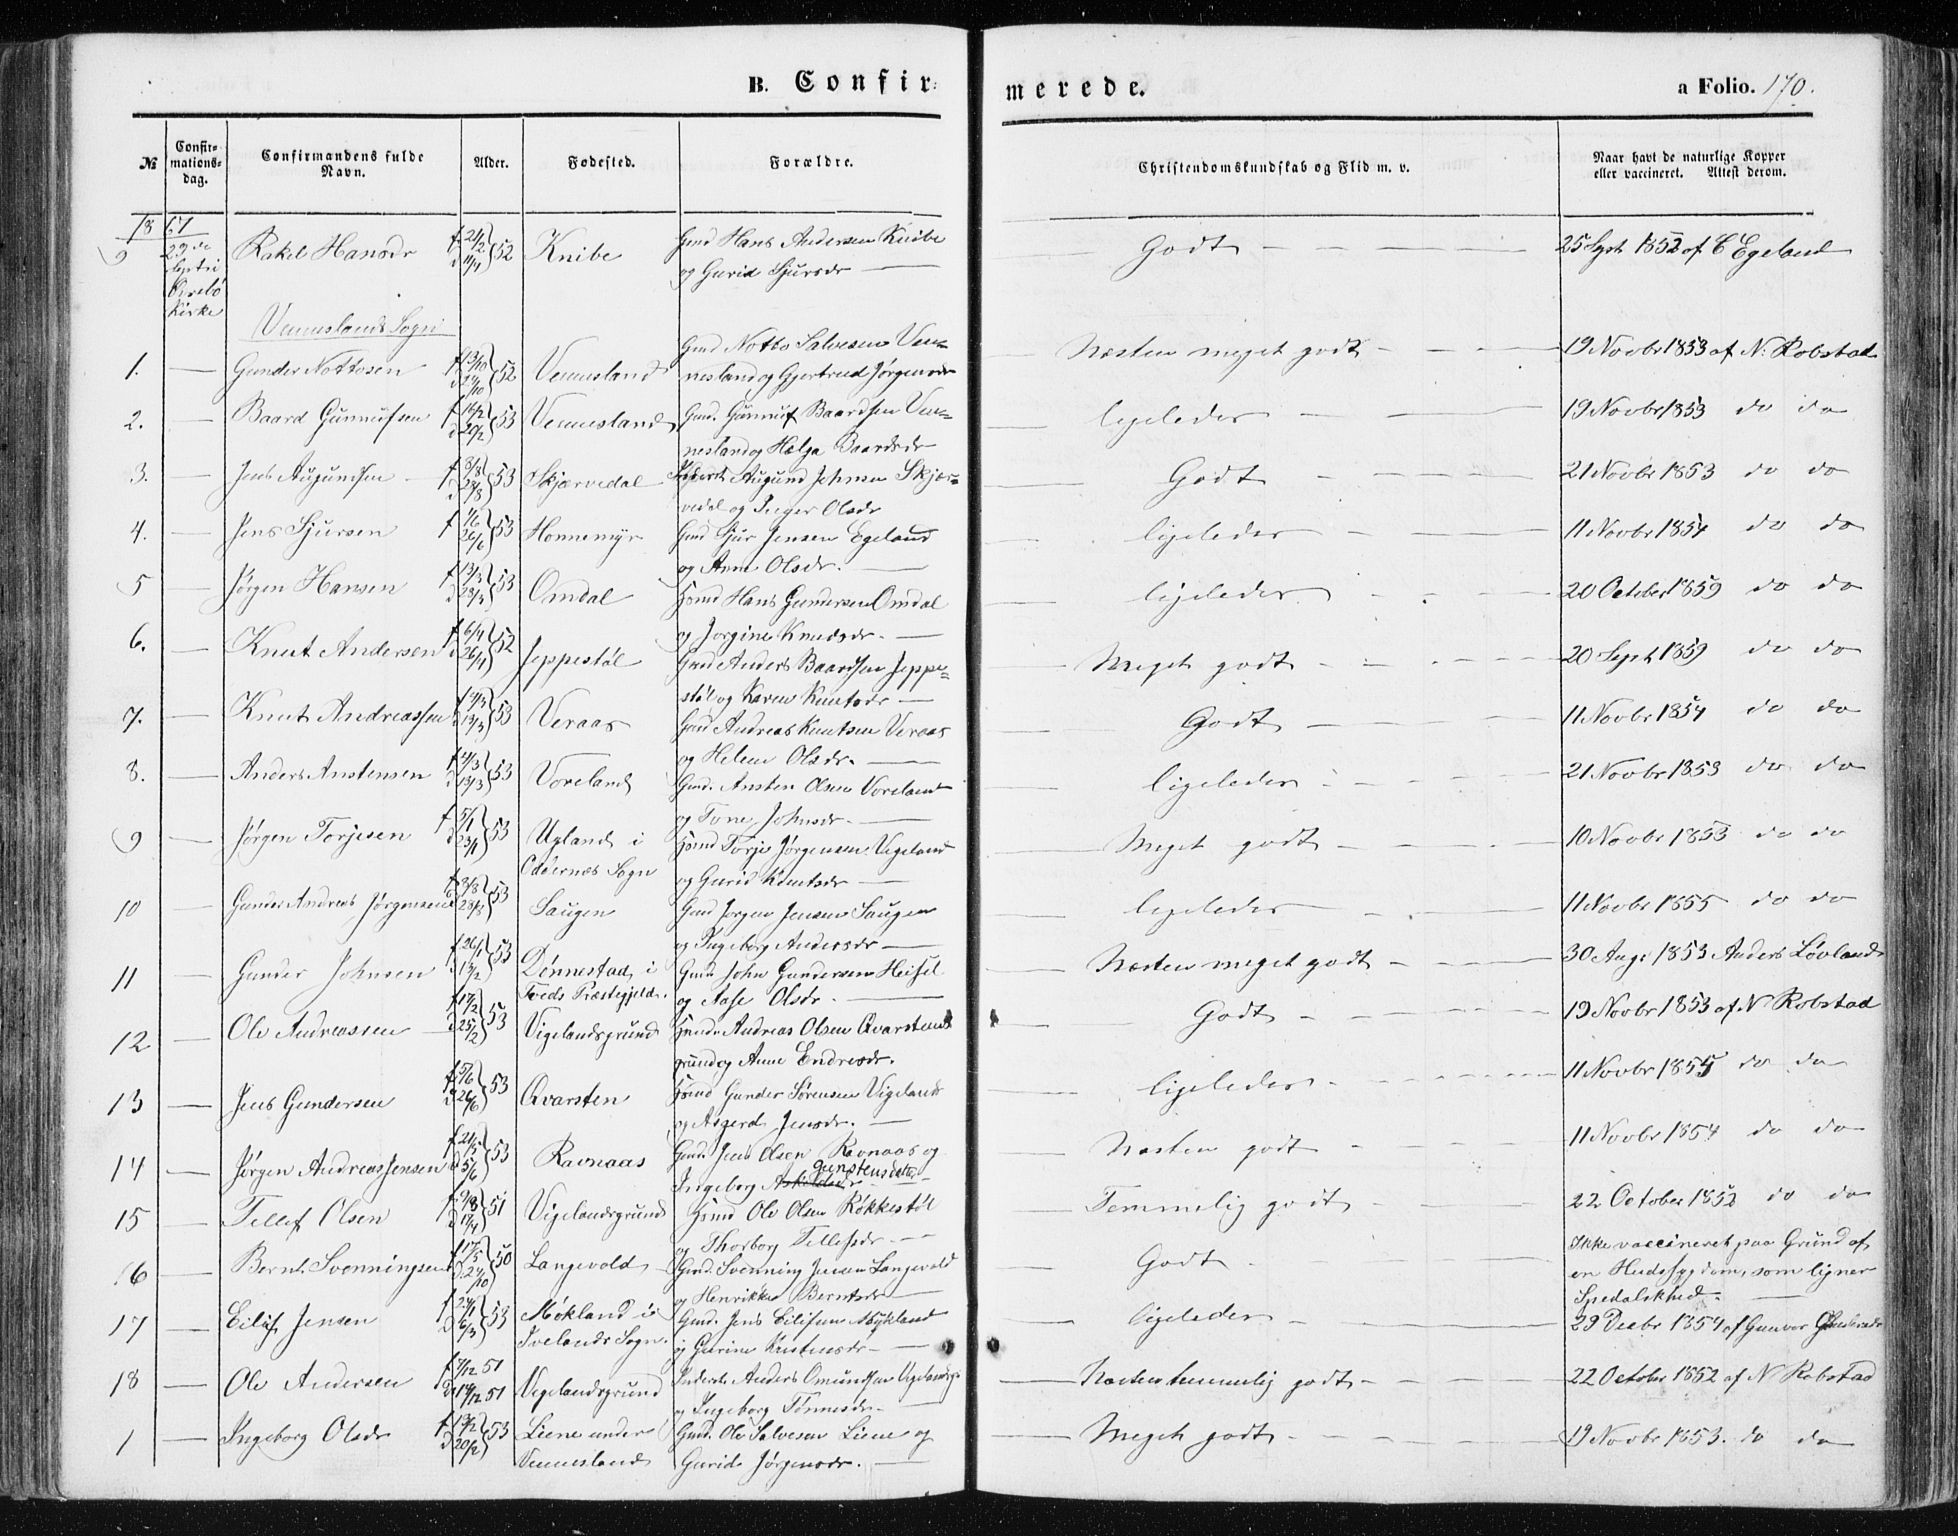 B. Confir-
merede.
a Folio. 170.
№
Confir-
mations-
dag.
Confirmandens fulde
Navn.
Alder.
Fødested.
Forældre.
Christendomskundskab og Flid m. v.
Naar havt de naturlige Kopper
eller vaccineret. Attest derom.
1867
9 29de Rakel Hansdr f 21/2 d 11/4 52 Knibe Gmd Hans Andersen Knibe Godt 25 Sept 1852 af C Egeland
Øvrebö og Gurid Sjursdr
Kirke
Venneslands Sogn
1. Gunder Nottosen f 13/10 52 Vennesland Gmd Notto Salvesen Ven- Næsten meget godt 19 Novbr 1853 af N. Robstad
nesland og Gjertrud Jørgensdr
2. Baard Gunnufsen f 16/2 d 20/2 53 Vennesland Gmd. Gunnuf Baardsen Ven- ligeledes 19 Novbr 1853 do do
nesland og Helga Baardsdr
3. Jens Augundsen f 3/8 d 28/8 53 Skjærvedal Augund Johnsen Skjær- Godt 21 Novbr 1853 do do
vedal og Inger Olsdr
4. Jens Sjursen f 1/6 26/6 53 Honnemyr Gmd Sjur Jensen Egeland ligeledes 11 Novbr 1854 do do
og Anne Olsdr.
5 Jørgen Hansen f 13/3 d 28/3 53 Omdal Hmd Hans Gundersen Omdal ligeledes 20 October 1859 do do
og Jorgine Knudsdr.
6. Knut Andersen f 6/4 26/4 52 Jeppestøl Gmd Anders Baardsen Jeppe- Meget godt 20 Sept 1859 do do
støl og Karen Knutsdr
7. Knut Andreassen f 4/3 13/3 53 Veraas Gmd Andreas Knutsen Veraas Godt 11 Novbr 1854 do do
og Helene Olsdr.
8. Anders Anstensen f 4/3 d 13/3 53 Voreland Gmd. Ansten Olsen Voreland ligeledes 21 Novbr 1853 do do
og Tone Johnsdr.
9 Jørgen Torjesen f 5/1 d 23/1 53 Ugland i Hmd Torje Jørgensen Vigeland Meget godt 10 Novbr 1853 do do
Oddernes Sogn og Gurid Knutsdr
10 Gunder Andreas Jørgensen f 3/8 28/8 53 Saugen Gmd Jørgen Jensen Saugen ligeledes 11 Novbr 1855 do do
og Ingeborg Andersdr
11 Gunder Johnsen f 26/1 d 13/2 53 Dønnestad i Gmd John Gundersen Heisel Næsten meget godt 30 Aug: 1853 Anders Løvland
Tveds Præstegjeld. og Aase Olsdr.
12 Ole Andreassen f 17/2 d 25/2 53 Vigelandsgrund Hmd. Andreas Olsen Qvarstens Godt 19 Novbr 1853 af N Robstad
grund og Anne Endresdr.
13 Jens Gundersen f 5/6 d 26/6 53 Qvarsten Hmd Gunder Sørensen Vigeland ligeledes 11 Novbr 1855 do do
og Asgerd Jensdr.
14 Jørgen Andreas Jensen f 21/5 d 5/6 53 Ravnaas Gmd. Jens Olsen Ravnaas og Næsten godt 11 Novbr 1854 do do
Ingeborg Gunstensdatter
15 Tellef Olsen 51 Vigelandsgrund Hmd Ole Olsen Røkkestøl Temmelig godt 22 October 1852 do do
og Thorborg Tellefsdr.
16 Bernt Svenningsen f 17/5 50 Langevold Gmd. Svenning Jensen Langevold Godt Ikke vaccineret paa Grund af
og Henrikke Berntsdr en Hudsygdom, som ligner
Spedalskhed.
17 Eilif Jensen 53 Møkland i Gmd. Jens Eilifsen Mykland ligeledes 29 Decbr 1854 af Gunvor
Ivelands Sogn. og Gurine Kristensdr
18 Ole Andersen f 7/12 51 d 14/12 51 Vigelandsgrund Inderst Anders Omundsen Vigelandsgr Næsten temmelig godt 22 October 1852 af N Robstad
og Ingeborg Tønnesdr
1 Ingeborg Olsdr f 13/2 d 20/2 53 Liene under Gmd. Ole Salvesen Liene og Meget godt 19 Novbr 1853. do do
Vennesland Gurid Jørgensdr.